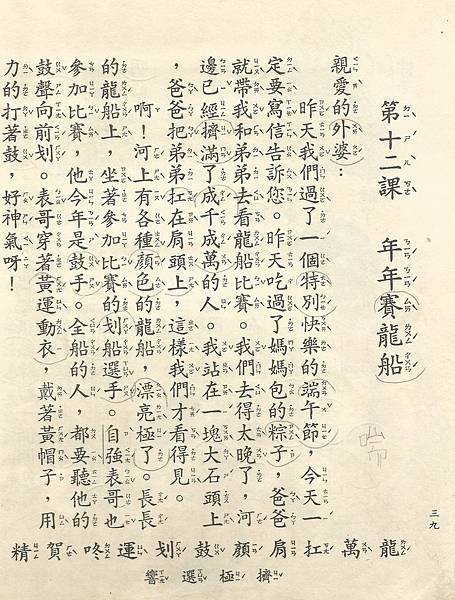 第十二課　年年賽龍船
親愛的外婆：
昨天我們過了一個特別快樂的端午節，今天一
定要寫信告訴您。昨天吃過了媽媽包的粽子，爸爸
就帶我和弟弟去看龍船比賽。我們去得太晚了，河
邊已經擠滿了成千成萬的人。我站在一塊大石頭上
，爸爸把弟弟扛在肩頭上，這樣我們才看得見。
啊！河上有各種顏色的龍船，漂亮極了。長長
的龍船上，坐著參加比賽的划船選手。自強表哥也
參加比賽，他今年是鼓手。全船的人，都要聽他的
鼓聲向前划。表哥穿著黃運動衣，戴著黃帽子，用
力的打著鼓，好神氣呀！
龍萬扛肩顏鼓划運咚賀精
擠極選響
三九